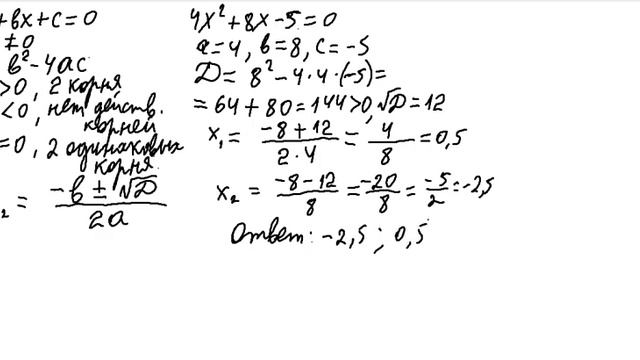 +bx+c=0
≠0
b²-4ac
>0, 2 корня
<0, нет действ.
корней
=0, 2 одинаковых
корня.
₂ = (-b ± √D)/2a
4x²+8x-5=0
a=4, b=8, c=-5
D = 8²-4·4·(-5)=
=64+80=144>0, √D=12
x₁ = (-8+12)/(2·4) = 4/8 = 0,5
x₂ = (-8-12)/8 = -20/8 = -5/2 = -2,5
Ответ: -2,5 ; 0,5